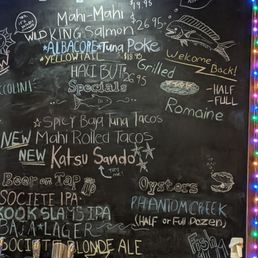 Mahi-Mahi $19.95
WILD KING Salmon $26.95
*ALBACORE*Tuna Poke
*YELLOWTAIL
Welcome Back!
HALIBUT Grilled
$26.95
Specials
-HALF
-FULL
Romaine
*Spicy Baja Tuna Tacos
NEW Mahi Rolled Tacos
NEW Katsu Sando
Beer on Tap
Oysters
SOCIETE IPA
PHANTOM CREEK
KOOK SLAMS IPA
(HALF or Full Dozen)
BAJA*LAGER
SOCIETE BLONDE ALE